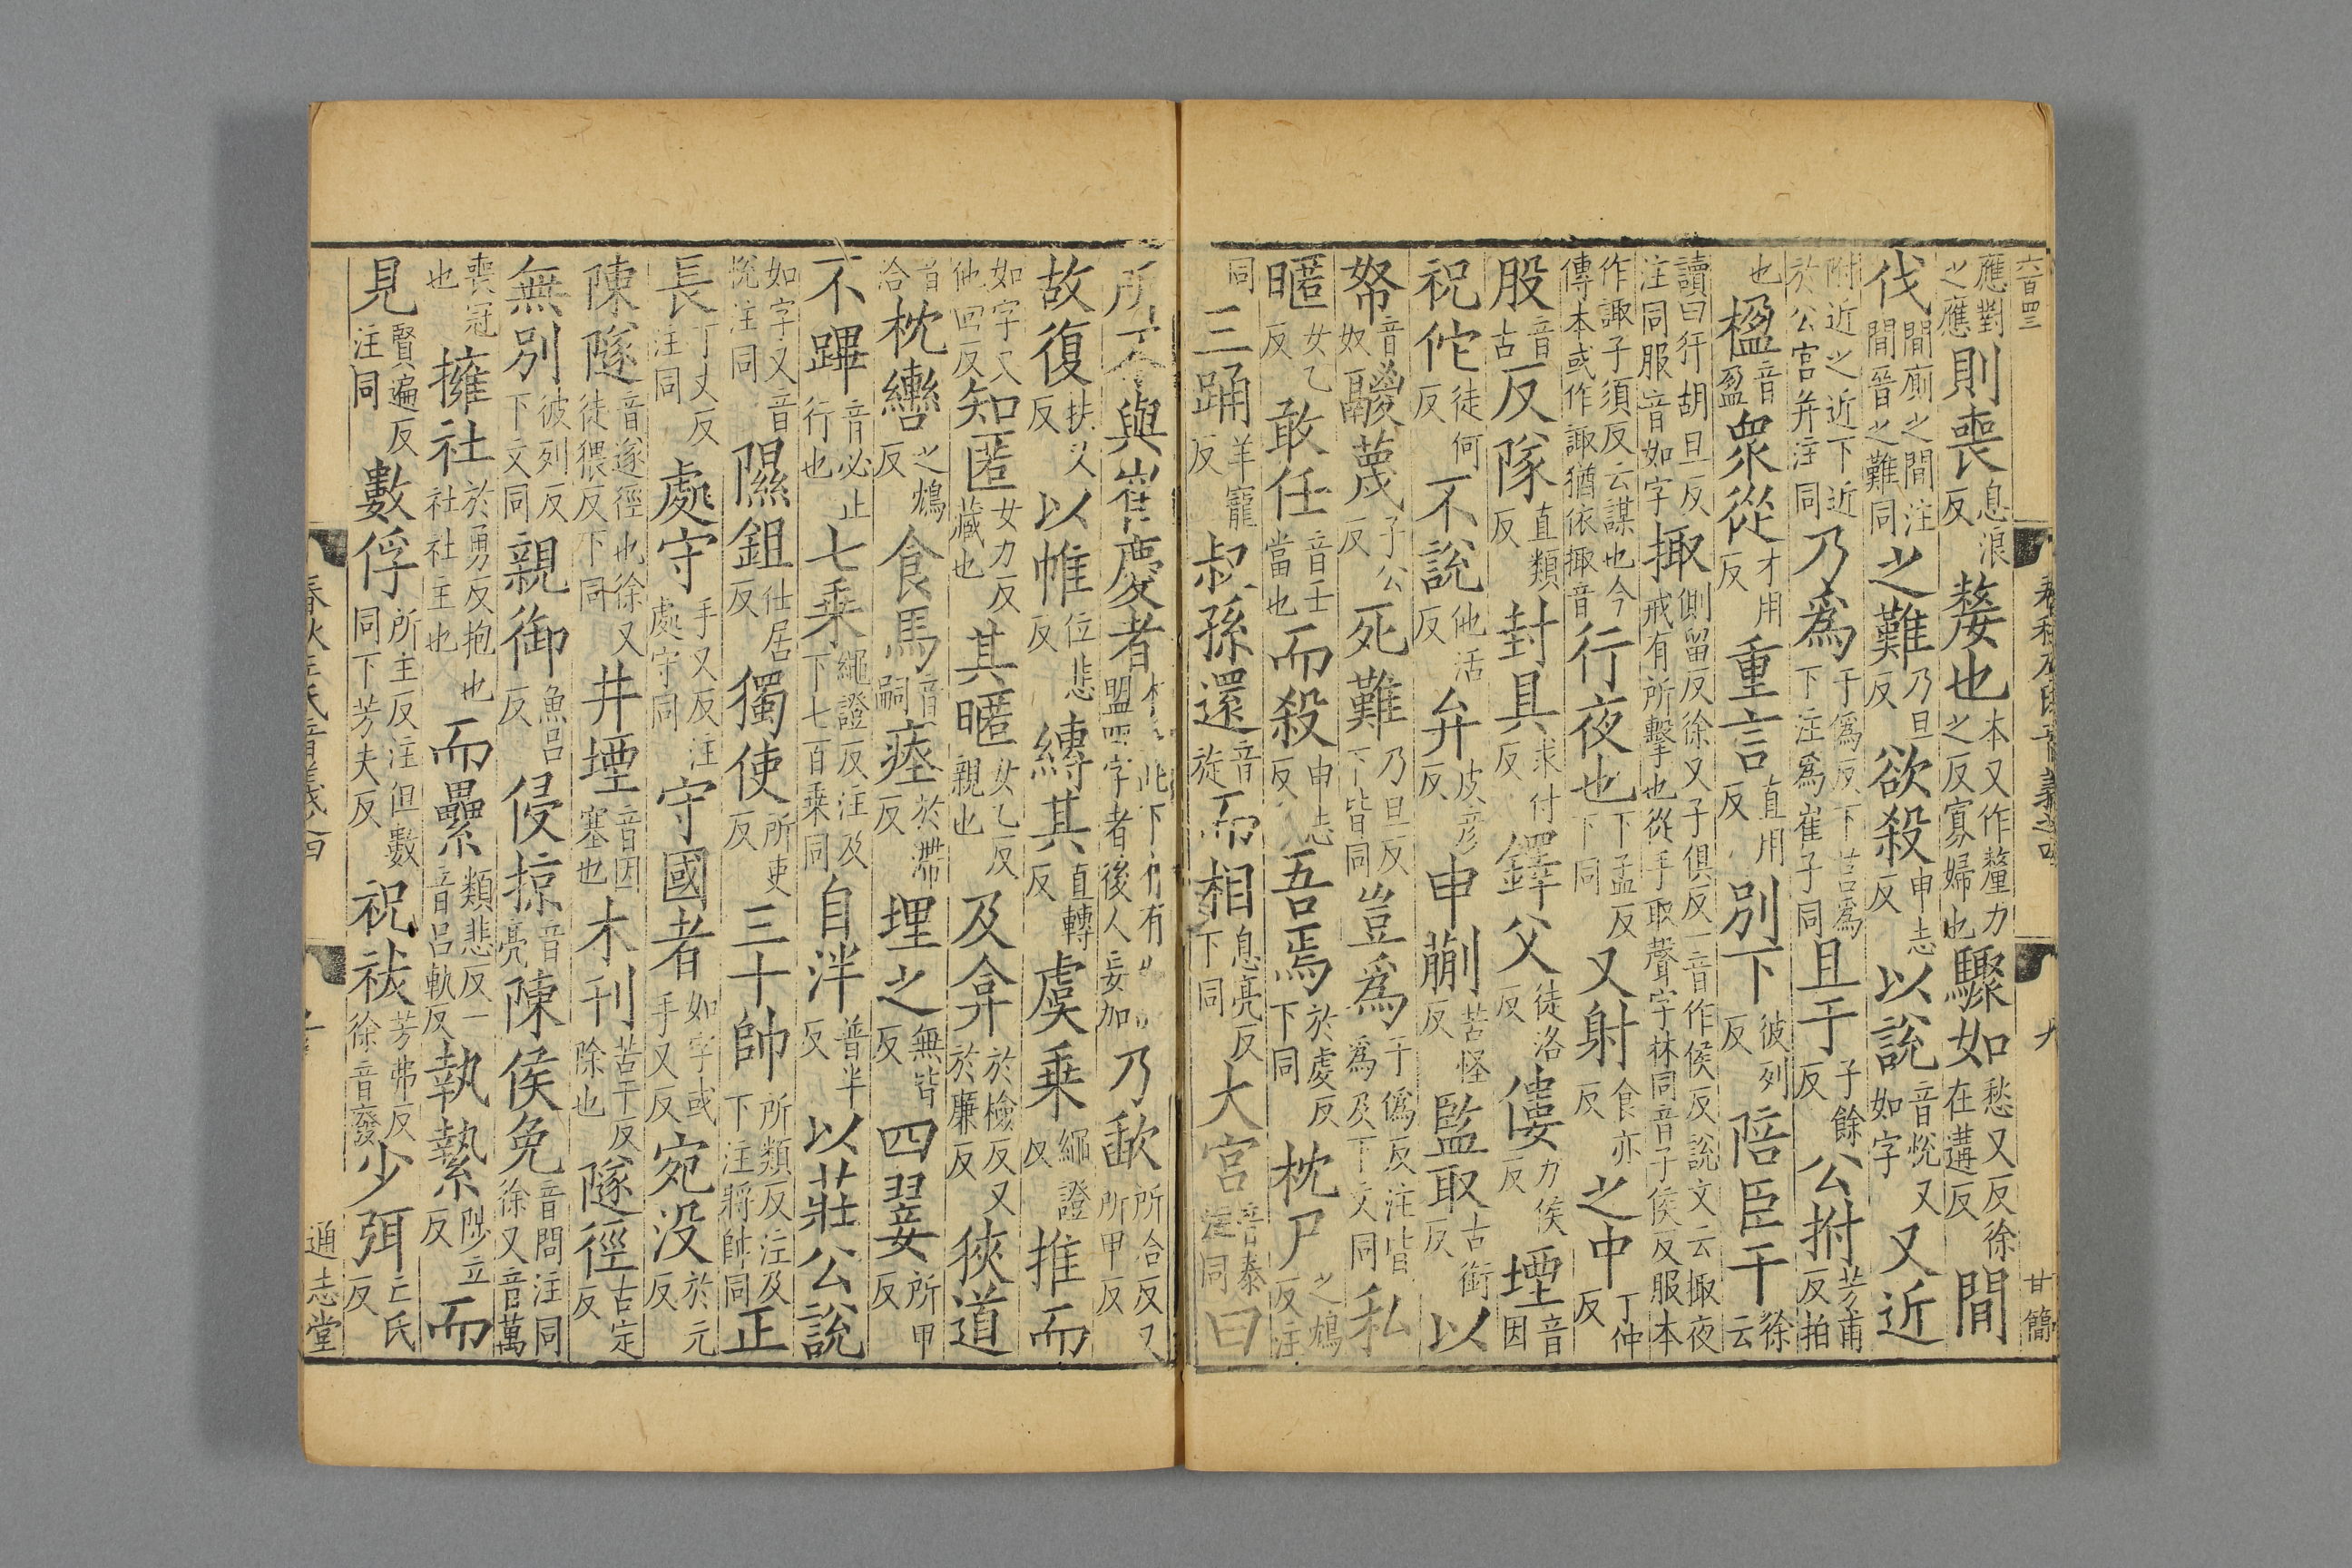 六百四三 春秋左氏音義之四 九 甘簡
應對之應則喪息浪反嫠也本又作釐力之反寡婦也驟如愁又反徐在遘反間
伐間廁之間注間晉之難同之難乃旦反欲殺申志反以說音悅又如字又近
附近之近下近於公宮并注同乃爲于僞反下言爲下注爲崔子同且于子餘反公拊芳甫反拍
也楹音盈衆從才用反重言直用反別下彼列反陪臣干徐云
讀曰犴胡旦反注同服音如字掫側留反徐又子俱反一音作侯反說文云掫夜戒有所擊也從手取聲字林同音子侯反服本
作諏子須反云謀也今傳本或作諏猶依掫音行夜也下孟反下同又射食亦反之中丁仲反
股音古反隊直類反封具求付反鐸父徒洛反僂力侯反堙音因
祝佗徒何反不說他活反弁皮彥反申蒯苦怪反監取古銜反以
帑音奴鬷蔑子公反死難乃旦反下皆同豈爲于僞反注皆爲及下文同私
暱女乙反敢任音壬當也而殺申志反吾焉於虔反下同枕尸之鴆反注
同三踊羊寵反叔孫還音旋而相息亮反下同大宮音泰注同曰
所不與崔慶者本此下有盟四字者後人妄加乃歃所合反又所甲反
故復扶又反以帷位悲反縳其直轉反虞乗繩證反推而
如字又他回反知匿女力反藏也其暱女乙反親也及弇於檢反又於廉反狹道
音洽枕轡之鴆反食馬音嗣瘞於滯反埋之無皆反四翣所甲反
不蹕音必止行也七乗繩證反注及下七百乗同自泮普半反以莊公說
如字又音悅注同隰鉏仕居反獨使所吏反三十帥所類反注及下注將帥同正
長丁丈反注同處守手又反注處守同守國者如字或手又反宛沒於元反
陳隧音遂徑也徐又徒猥反下同井堙音因塞也木刊苦干反除也隧徑古定反
無別彼列反下文同親御魚呂反侵掠音亮陳侯免音問注同徐又音萬
喪冠也擁社於勇反抱也社社主也而纍類悲反一音呂軌反執縶陟立反而
見賢遍反注同數俘所主反注但數同下芳夫反祝祓芳弗反徐音發少弭亡氏反
春秋左氏音義之四 通志堂